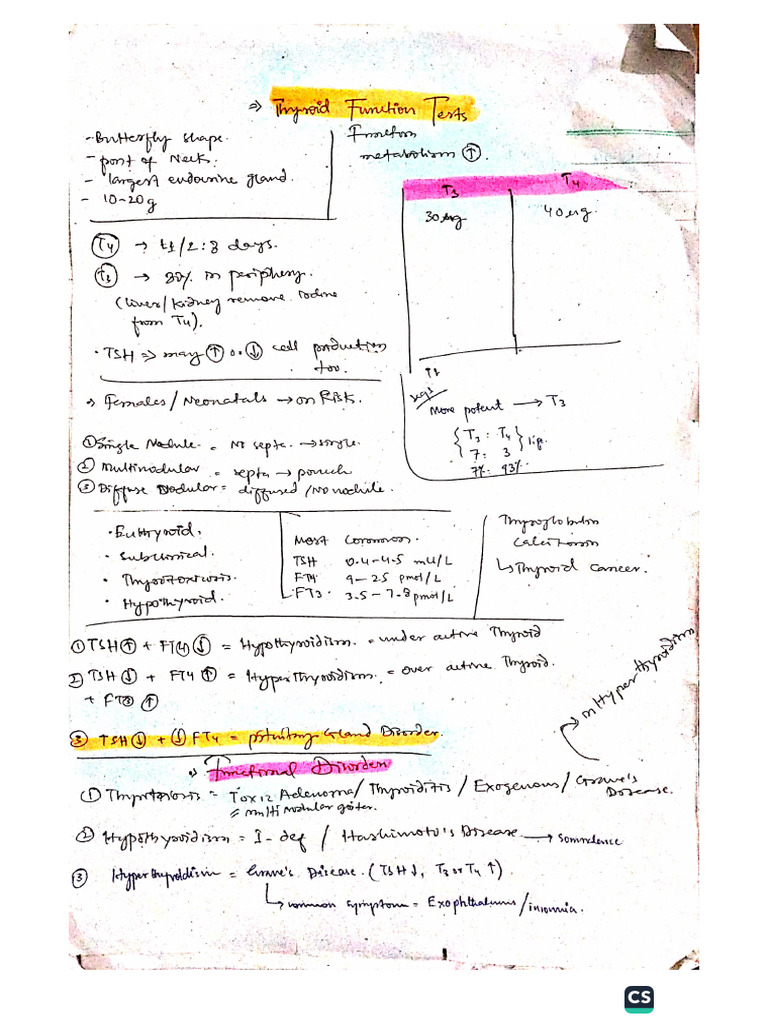 ⇒ Thyroid Function Tests
- Butterfly shape.
- part of Neck.
- largest endocrine gland.
- 10-20 g
Function
metabolism ↑.
T3 T4
30 µg 40 µg.
T4 → t1/2 : 8 days.
T3 → 80% in periphery.
(liver/kidney remove iodine
from T4).
· TSH ⇒ may ↑ or ↓ cell production
too.
⇒ Females/Neonatals → on Risk.
More potent → T3
{ T3 : T4 }
7 : 3
7% : 93%
① Single Nodule = No septa. → single.
② Multinodular = septa → pouch
③ Diffuse Nodular = diffused / No nodule.
· Euthyroid,
· Subclinical.
· Thyrotoxicosis.
· Hypothyroid.
Most Common.
TSH 0.4-4.5 mU/L
FT4 9-25 pmol/L
FT3 3.5-7.8 pmol/L
Thyroglobulin
Calcitonin
↳ Thyroid cancer.
① TSH ↑ + FT4 ↓ = Hypothyroidism. = under active Thyroid
② TSH ↓ + FT4 ↑ = Hyper Thyroidism. = over active Thyroid.
+ FT3 ↑
→ Hyper thyroidism
③ TSH ↓ + ↓ FT4 = pituitary Gland Disorder.
⇒ Functional Disorders
① = Toxic Adenoma / Thyroiditis / Exogenous / Grave's Disease.
= multi nodular goiter.
② Hypothyroidism = I- def / Hashimoto's Disease → Somnolence
③ Hyperthyroidism = Grave's Disease. (TSH ↓, T3 or T4 ↑)
↳ common symptom = Exophthalmus / insomnia.
CS